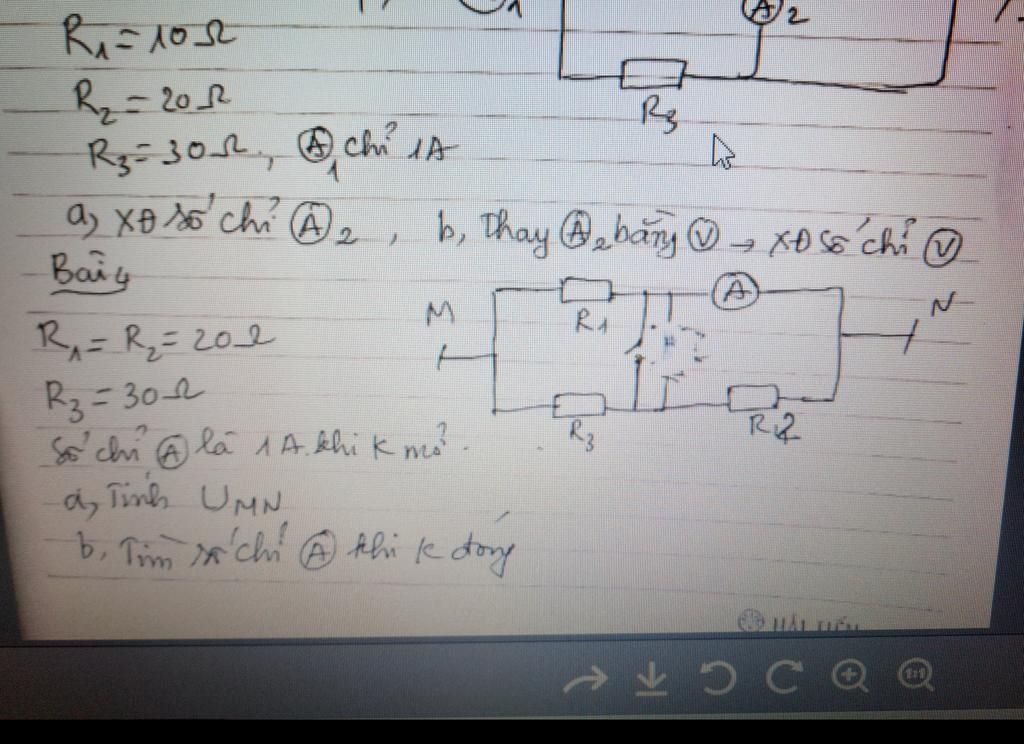 R1 = 10Ω
A 2
R2 = 20Ω
R3
R3 = 30Ω, A1 chỉ 1A
a, XĐ số chỉ A 2, b, Thay A 2 bằng V → XĐ số chỉ V
Bài 4
M R1 A N
R1 = R2 = 20Ω
R3 = 30Ω
R3 R2
Số chỉ A là 1A khi K mở.
a, Tính UMN
b, Tìm số chỉ A khi K đóng
1:1